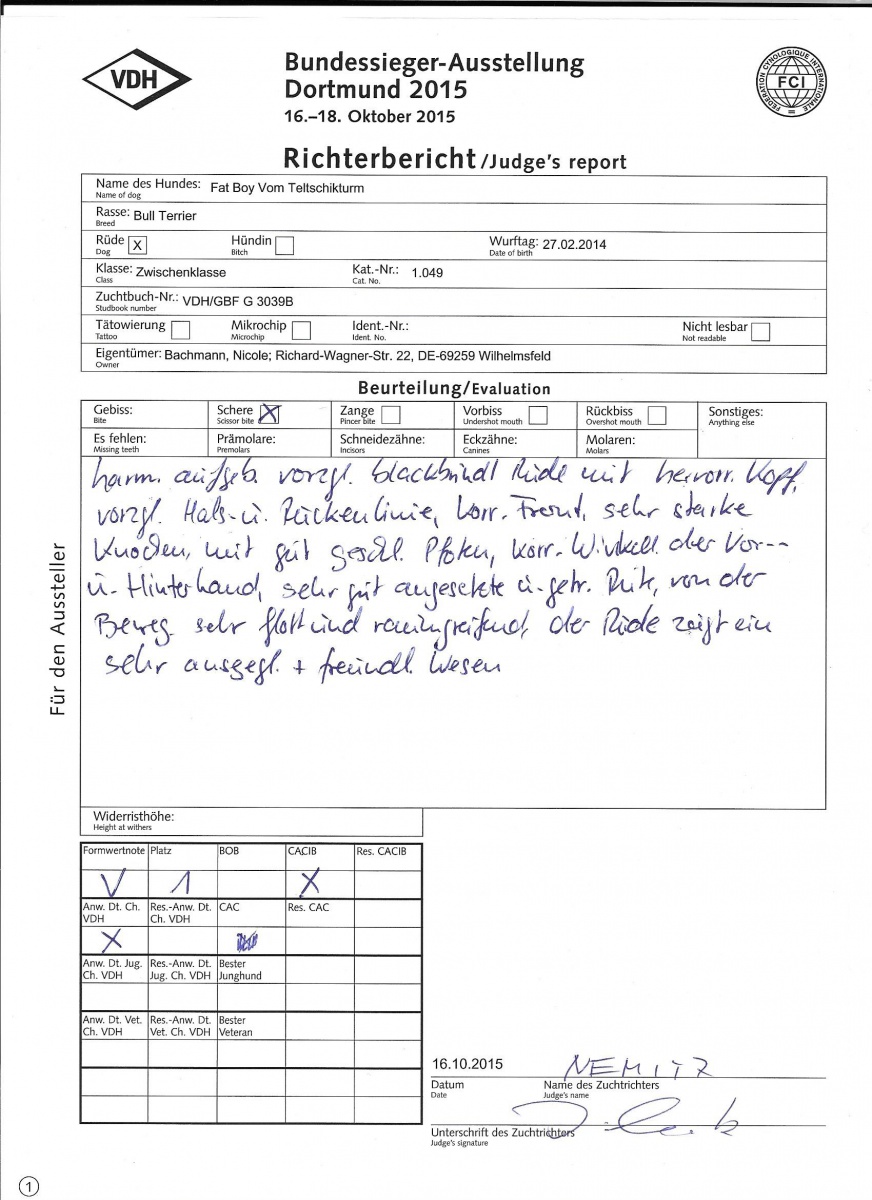 VDH
Bundessieger-Ausstellung
Dortmund 2015
16.–18. Oktober 2015
FEDERATION CYNOLOGIQUE INTERNATIONALE
FCI
Richterbericht /Judge's report
Name des Hundes: Fat Boy Vom Teltschikturm
Name of dog
Rasse: Bull Terrier
Breed
Rüde X Hündin Wurftag: 27.02.2014
Dog Bitch Date of birth
Klasse: Zwischenklasse Kat.-Nr.: 1.049
Class Cat. No.
Zuchtbuch-Nr.: VDH/GBF G 3039B
Studbook number
Tätowierung Mikrochip Ident.-Nr.: Nicht lesbar
Tattoo Microchip Ident. No. Not readable
Eigentümer: Bachmann, Nicole; Richard-Wagner-Str. 22, DE-69259 Wilhelmsfeld
Owner
Beurteilung/Evaluation
Gebiss: Schere X Zange Vorbiss Rückbiss Sonstiges:
Bite Scissor bite Pincer bite Undershot mouth Overshot mouth Anything else
Es fehlen: Prämolare: Schneidezähne: Eckzähne: Molaren:
Missing teeth Premolars Incisors Canines Molars
harm. aufgeb. vorzgl. blackbrindl Rüde mit hervorr. Kopf,
vorzgl. Hals- u. Rückenlinie, korr. Front, sehr starke
Knochen, mit gut geschl. Pfoten, korr. Winkell. der Vor--
u. Hinterhand, sehr gut angesetzte u. getr. Rute, von der
Beweg. sehr flott und raumgreifend, der Rüde zeigt ein
sehr ausgegl. + freundl. Wesen
Für den Aussteller
Widerristhöhe:
Height at withers
Formwertnote Platz BOB CACIB Res. CACIB
V 1 X
Anw. Dt. Ch. Res.-Anw. Dt. CAC Res. CAC
VDH Ch. VDH
X
Anw. Dt. Jug. Res.-Anw. Dt. Bester
Ch. VDH Jug. Ch. VDH Junghund
Anw. Dt. Vet. Res.-Anw. Dt. Bester
Ch. VDH Vet. Ch. VDH Veteran
16.10.2015 NEMITZ
Datum Name des Zuchtrichters
Date Judge's name
Unterschrift des Zuchtrichters
Judge's signature
1